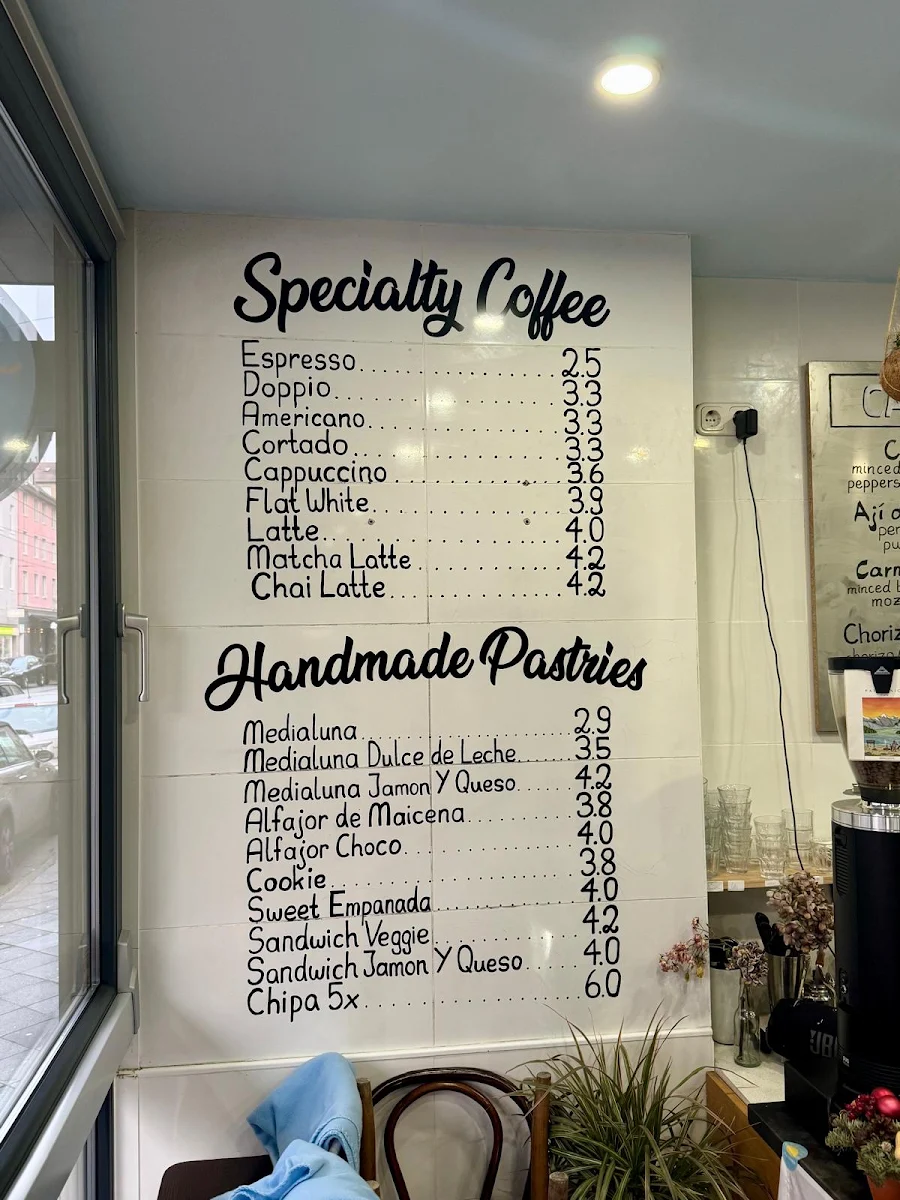 Specialty Coffee
Espresso 2.5
Doppio 3.3
Americano 3.3
Cortado 3.3
Cappuccino 3.6
Flat White 3.9
Latte 4.0
Matcha Latte 4.2
Chai Latte 4.2
Handmade Pastries
Medialuna 2.9
Medialuna Dulce de Leche 3.5
Medialuna Jamon Y Queso 4.2
Alfajor de Maicena 3.8
Alfajor Choco 4.0
Cookie 3.8
Sweet Empanada 4.0
Sandwich Veggie 4.2
Sandwich Jamon Y Queso 4.0
Chipa 5x 6.0
minced
peppers
Ají
Carn
minced b
moz
Choriz
JBL